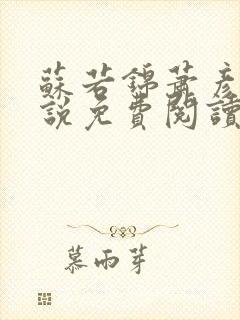 蘇若錦蕭彥
說免費閱讀
慕雨芽